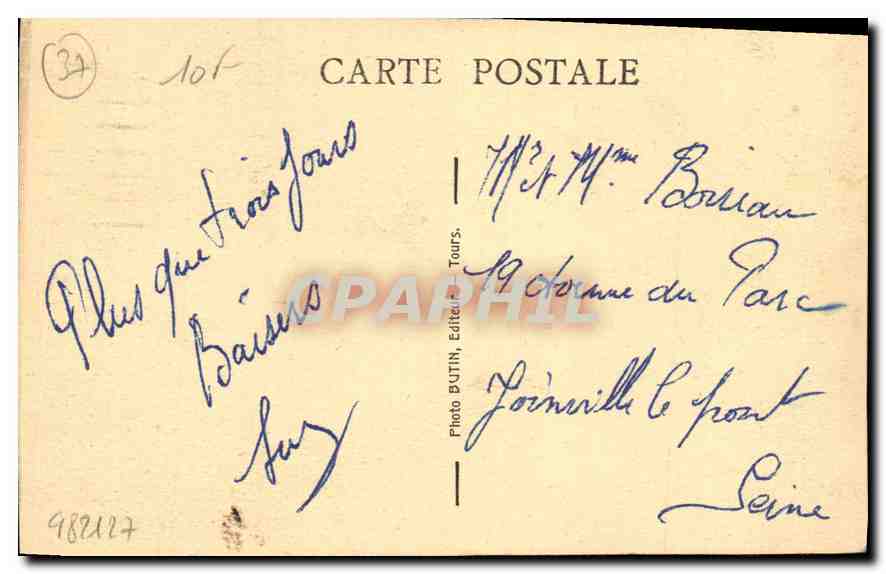 37
10F
CARTE POSTALE
Plus que trois jours
Baisers
Suz
Photo BUTIN, Editeur - Tours.
Mr et Mme Boireau
19 Avenue du Parc
Joinville le pont
Seine
CPAPHIL
982127